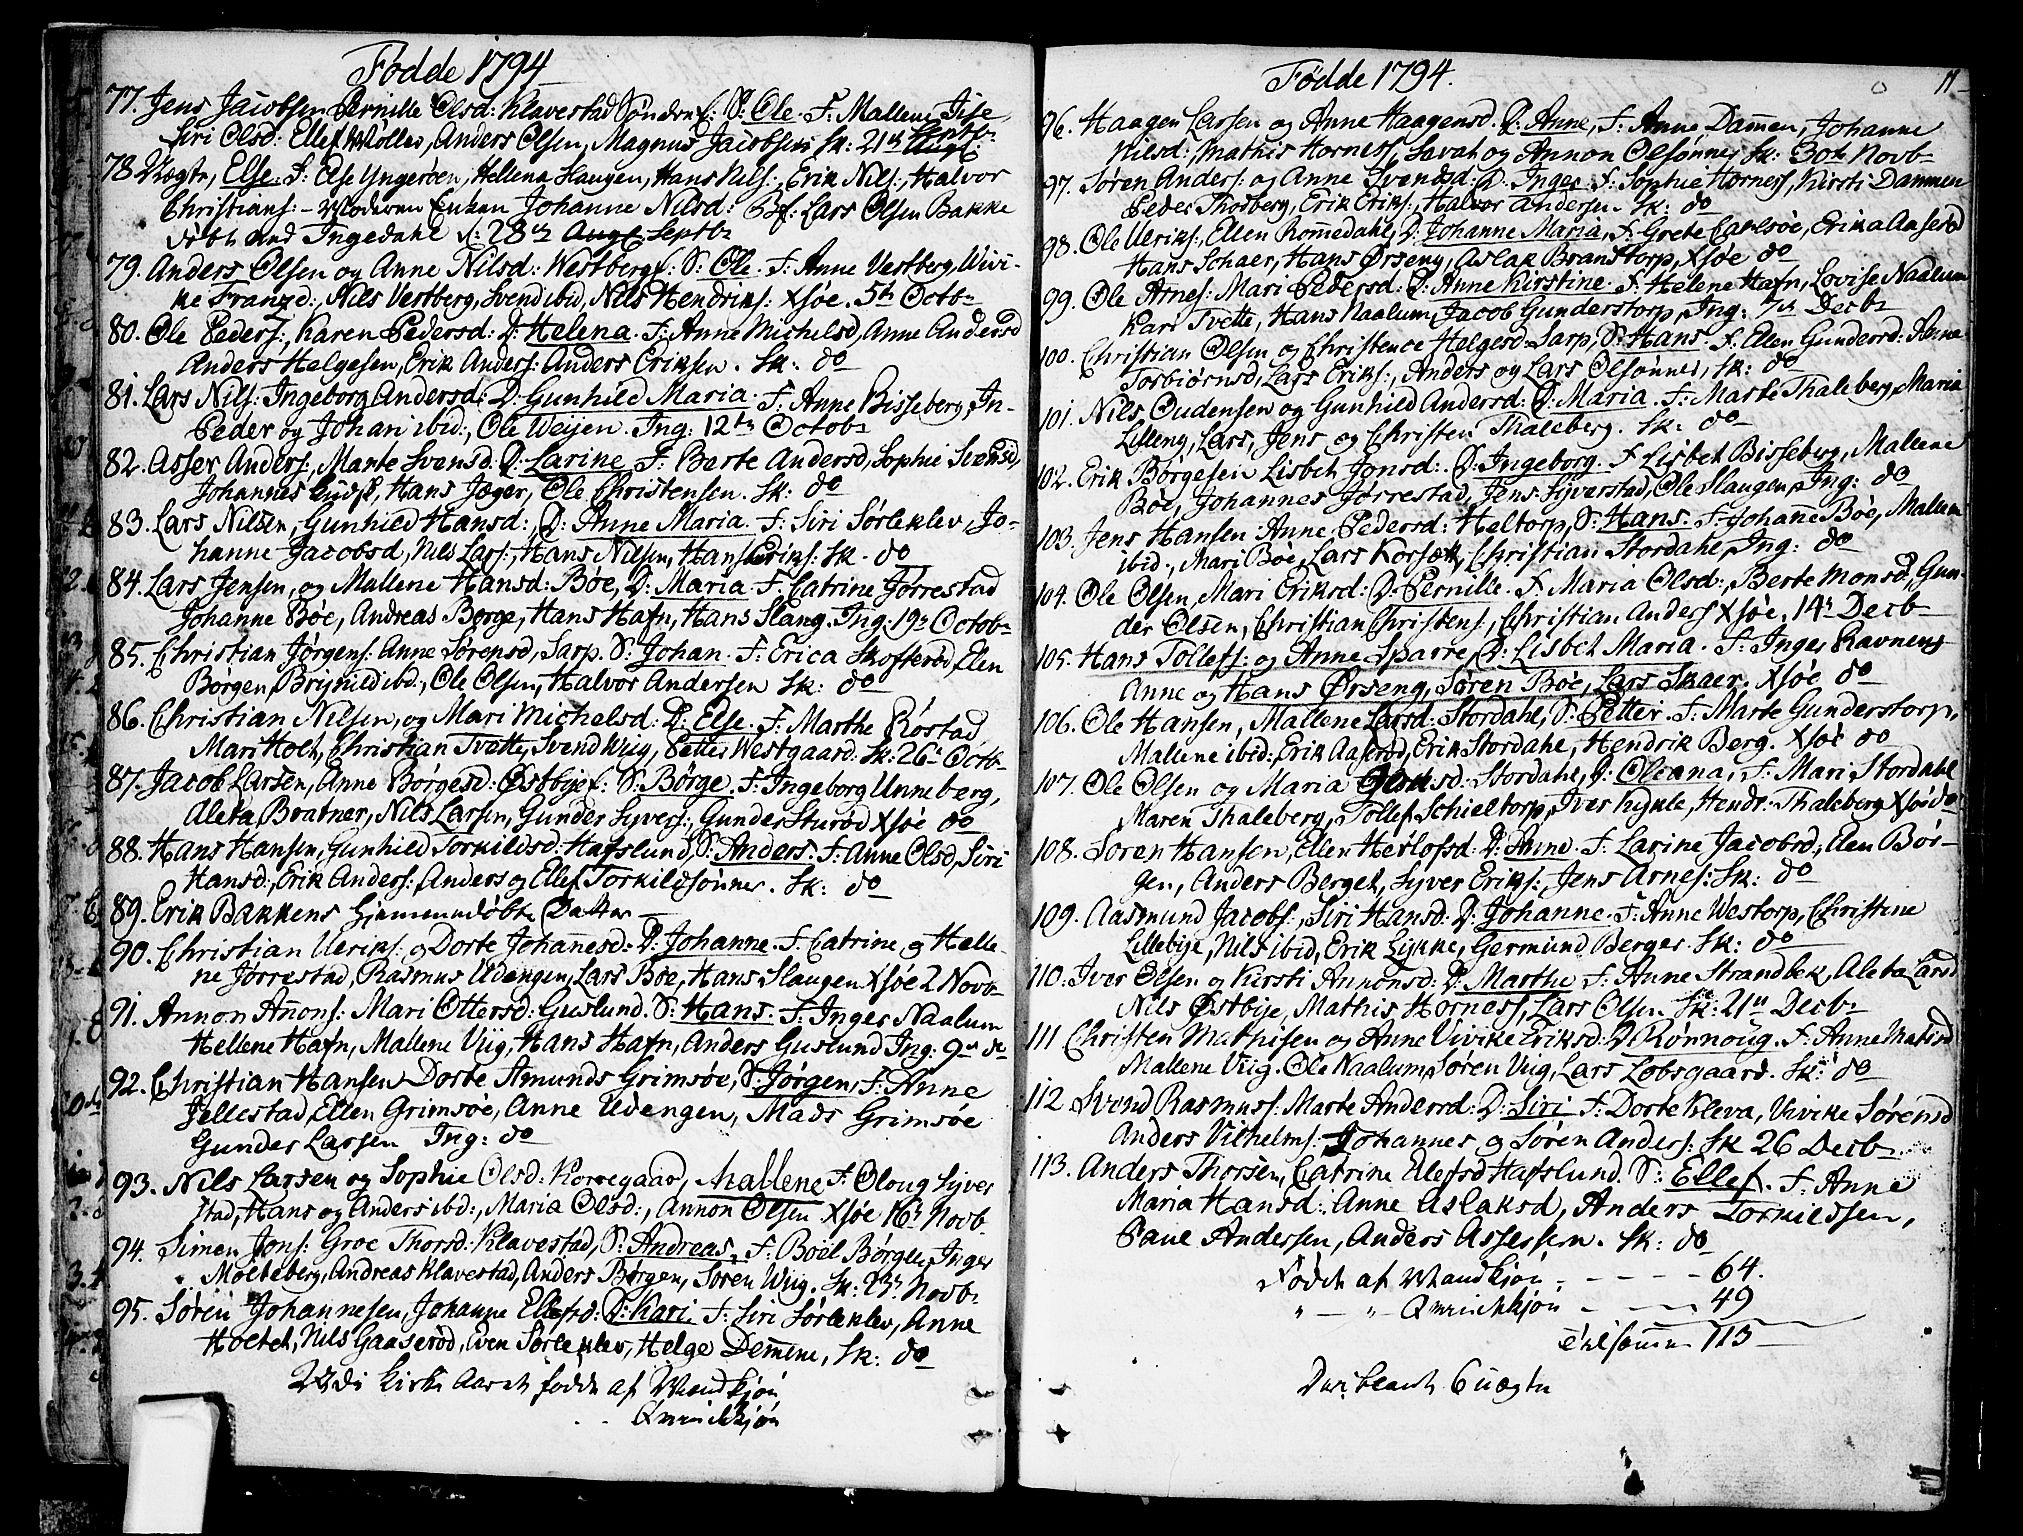 Fødde 1794
77. Jens Jacobsen Pernille Olsd: Klavestad Søndre f: S: Ole. F: Mallene Tise,
Siri Olsd: Ellef Møller, Anders Olsen, Magnus Jacobsen Sk: 21de Septbr
78 Uægte, Else. F: Else Yngerøen, Hellena Haugen, Hans Nils:, Erik Nils:, Halvor
Christians: - Moderen Enken Johanne Nilsd: Bf: Lars Olsen Bakke
Døbt ved Ingedahl d: 28de Augt Septbr
79. Anders Olsen og Anne Nilsd: Westberg f: S: Ole. F: Anne Vestberg, Wivi-
ke Franzd:, Nils Vestberg, Svend ibid, Nils Hendriks: Xsøe. 5te Octbr
80. Ole Peders:, Karen Pedersd: D: Helena. F: Anne Michelsd, Anne Andersd
Anders Helgesen, Erik Anders: Anders Eriksen. Sk: do
81. Lars Nils: Ingeborg Andersd: D: Gunhild Maria. F: Anne Bisseberg, In-
Peder og Johan ibid:, Ole Weijen. Ing: 12te Octobr
82. Asser Anders:, Marte Svensd. D: Larine F: Berte Andersd, Sophie Svensd,
Johannes, Hans Jæger, Ole Christensen. Sk: do
83. Lars Nilsen, Gunhild Hansd: D: Anne Maria. F: Siri Sørleklev, Jo-
hanne Jacobsd, Nils Lars:, Hans Nilsen, Hans Eriks: Sk. do
84. Lars Jensen, og Mallene Hansd: Bøe, D: Maria F: Catrine Jørrestad
Johanne Bøe, Andreas Borge, Hans Hafn, Hans Slang. Ing: 19de Octobr
85. Christian Jørgens: Anne Sørensd, Sarp. S: Johan. F: Erica Skofterød, Elen
Børgen, Brynild ibd:, Ole Olsen, Halvor Andersen Sk: do
86. Christian Nilsen, og Mari Michelsd: D: Else. F: Marthe Rostad
Mari Holt, Christian Tvette, Svend Wiig, Petter Westgaard: Sk: 26de Octbr
87. Jacob Larsen, Anne Børgesd: Østbye f: S: Børge. F: Ingeborg Unneberg,
Aleta Bratner, Nils Larsen, Gunder Syvers:, Gunder Sturød Xsøe do
88. Hans Hansen, Gunhild Torkildsd: Hafslund, S: Anders. F: Anne Olsd, Siri
Hansd:, Erik Anders: Anders og Ellef Torkildsønner. Sk: do
89. Erik Bakkens hjemmedøbte Datter
90. Christian Ulriks: og Dorte Johanesd: D: Johanne. F: Catrine og Helle-
ne Jørrestad, Rasmus Udengen, Lars Bøe, Hans Slaugen Xsøe 2 Novbr
91. Annon Anons: Mari Ottersd: Guslund. S: Hans. F: Inger Naalum
Hellene Hafn, Mallene Viig, Hans Hafn, Anders Guslund Ing: 9de do
92. Christian Hansen Dorte Amunds Grimsøe, S: Jørgen, F: Anne
Jellestad, Ellen Grimsøe, Anne Udengen, Mads Grimsøe
Gunder Larsen Ing: do
93. Nils Larsen og Sophie Olsd: Korregaar, Mallene F: Oloug Syver
stad, Hans og Anders ibd:, Maria Olsd:, Annon Olsen Xsøe 16de Novb
94. Simen Jons: Groe Thorsd: Klavestad, S: Andreas, F: Boel Børgen, Inger
Molteberg, Andreas Klavestad, Anders Børgen, Søren Wiig. Sk: 23de Novbr
95. Søren Johannesen, Johanne Ellefsd: D: Kari F: Siri Sørleklev, Anne
Holtet, Nils Gaaserød, Even Sørleklev, Helge Demene, Sk: do
Udi Kirke Aaret fødde af Mandkjøn
Qvindekjøn
Fødde 1794.
11
96. Haagen Larsen og Anne Haagensd. D: Anne, F: Anne Damen, Johanne
Nilsd: Mathis Hornes, Sovat og Annon Olsønner Sk: 30te Novbr
97. Søren Anders: og Anne Svendsd: D: Inger F: Sophie Hornes, Kirsti Dammen
Peder Thosberg, Erik Eriks:, Halvor Andersen. Sk: do
98. Ole Ulriks:, Ellen Romedahl, D: Johanne Maria, F: Grete Carlsøe, Erika Aaserød
Hans Schaer, Hans Ørseng, Aslak Branstorp, Xsøe do
99. Ole Arnes: Mari Pedersd: D: Anne Kirstine F: Helene Hafn, Lovise Naalum
Karl Tvette, Hans Naalum, Jacob Gunderstorp, Ing: 7de Decbr
100. Christian Olsen og Christence Helgesd Sarp, S: Hans. F: Ellen Gundersd: Anne
Torbiørnsd, Lars Eriks:, Anders og Lars Olsønner, Sk: do
101. Nils Oudensen og Gunhild Andersd: D: Maria. F: Marte Thaleberg, Maria
Lilleng, Lars, Jens og Christen Thaleberg. Sk: do
102. Erik Børgesen Lisbet Jonsd: D: Ingeborg. F: Lisbet Bisseberg, Mallene
Bøe, Johannes Jørrestad, Jens Syverstad, Ole Slaugen, Ing: do
103. Jens Hansen Anne Pedersd: Heltorp, S: Hans. F: Johane Bøe, Mallene
ibid:, Mari Bøe, Lars Korsæk, Christian Stordahl, Ing: do
104. Ole Olsen, Mari Eriksd: D: Pernille. F: Maria Olsd:, Berte Monsd, Gun-
der Olsen, Christian Christens:, Christian Anders Xsøe, 14de Decb
105. Hans Tollefs: og Anne Sparre, D: Lisbet Maria. F: Inger Ravneng
Anne og Hans Ørseng, Søren Bøe, Lars Skaer. Xsøe do
106. Ole Hansen, Mallene Larsd: Stordahl, S: Petter. F: Marte Gunderstorp,
Mallene ibid:, Erik Aaserød, Erik Stordahl, Hendrik Berg. Xsøe do
107. Ole Olsen og Maria Stordahl, D: Oleana, F: Mari Stordahl
Maren Thaleberg, Tollef Schieltorp, Iver Kynle, Hendr: Thaleberg Xsøe do
108. Søren Hansen, Ellen Herlofsd: D: Anne. F: Larine Jacobsd:, Elen Bør-
gen, Anders Berget, Syver Eriks:, Jens Arnes: Sk: do
109. Aasmund Jacobs:, Siri Hansd: D: Johanne. F: Anne Westorp, Christine
Lillebye, Nils ibid, Erik Lykke, Germund Berger. Sk: do
110. Iver Olsen og Kirsti Annonsd: D: Marthe F: Anne Strandbek, Aleta Larsd
Nils Østbye, Mathis Hornes, Lars Olsen. Sk: 21de Decbr
111 Christen Mathisen og Anne Vivike Eriksd: D: Rønnoug. F: Anne Matisd
Mallene Viig. Ole Naalum, Søren Viig, Lars Lobsgaard. Sk: do
112 Svend Rasmus: Marte Andersd: D: Siri F: Dorte Kleva, Vivike Sørensd
Anders Vilhelms: Johannes og Søren Anders: Sk 26 Decbr
113. Anders Thorsen, Catrine Elefsd Hafslund. S: Ellef. F: Anne
Maria Hansd: Anne Aslaksd, Anders Torkildsen,
Paul Andersen, Anders Assersen. Sk: do
Født af Mandkjøn - - - - 64.
" — " Qvindekjøn - - - 49
Tilsamen 113
Deriblandt 6 uægte